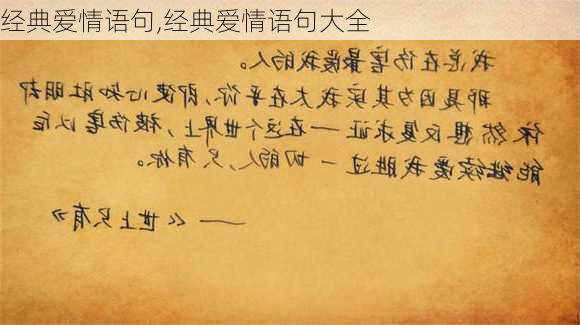 经典爱情语句,经典爱情语句大全
我总在伤害最爱我的人。
那是因为其实我太在乎你,即使心知肚明却
依然想反复求证——在这个世界上,被伤害以后
能继续爱我胜过一切的人,只有你。
——《世上只有》